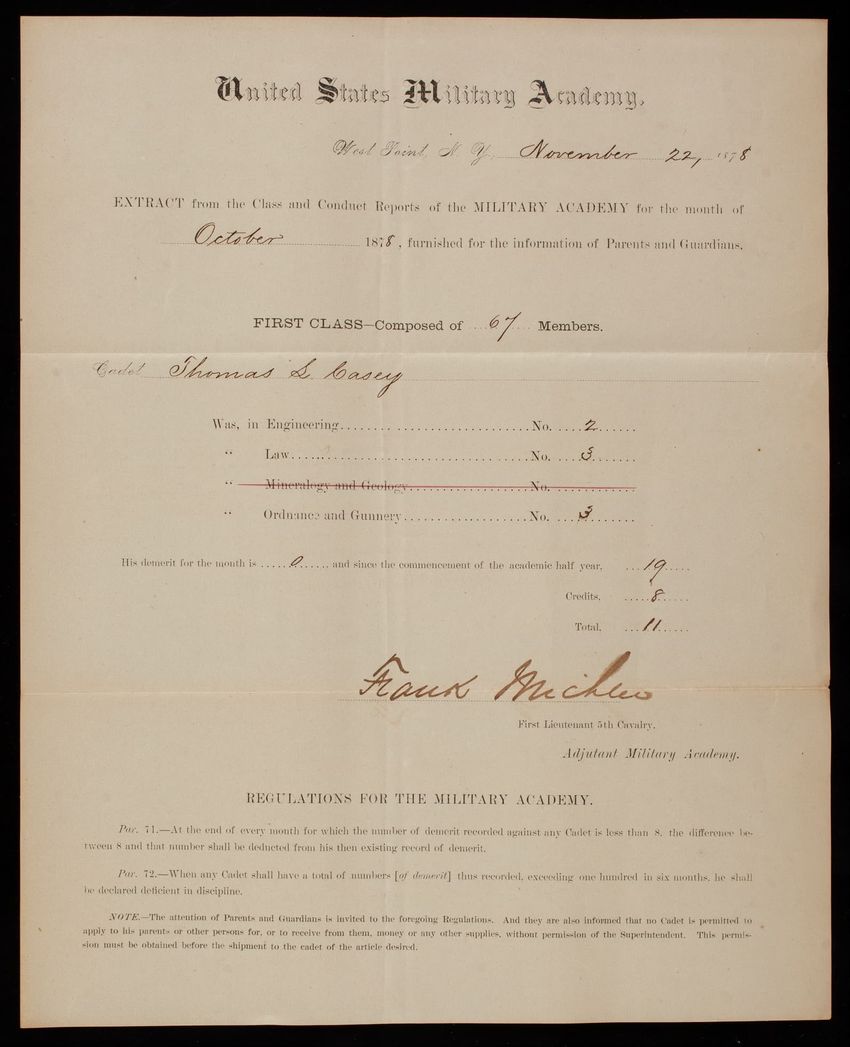 United States Military Academy.
West Point, N. Y., November 22, 1878
EXTRACT from the Class and Conduct Reports of the MILITARY ACADEMY for the month of
October 1878, furnished for the information of Parents and Guardians.
FIRST CLASS—Composed of 67 Members.
Cadet Thomas L. Casey
Was, in Engineering.......... No. 2
" Law.......... No. 3
" Mineralogy and Geology.......... No.
" Ordnance and Gunnery.......... No. 3
His demerit for the month is ..... 0 ..... and since the commencement of the academic half year, ... 19 .....
Credits, ..... 8 .....
Total, ... 11 .....
Frank Michler
First Lieutenant 5th Cavalry,
Adjutant Military Academy.
REGULATIONS FOR THE MILITARY ACADEMY.
Par. 71.—At the end of every month for which the number of demerit recorded against any Cadet is less than 8, the difference be-
tween 8 and that number shall be deducted from his then existing record of demerit.
Par. 72.—When any Cadet shall have a total of numbers [of demerit] thus recorded, exceeding one hundred in six months, he shall
be declared deficient in discipline.
NOTE.—The attention of Parents and Guardians is invited to the foregoing Regulations. And they are also informed that no Cadet is permitted to
apply to his parents or other persons for, or to receive from them, money or any other supplies, without permission of the Superintendent. This permis-
sion must be obtained before the shipment to the cadet of the article desired.